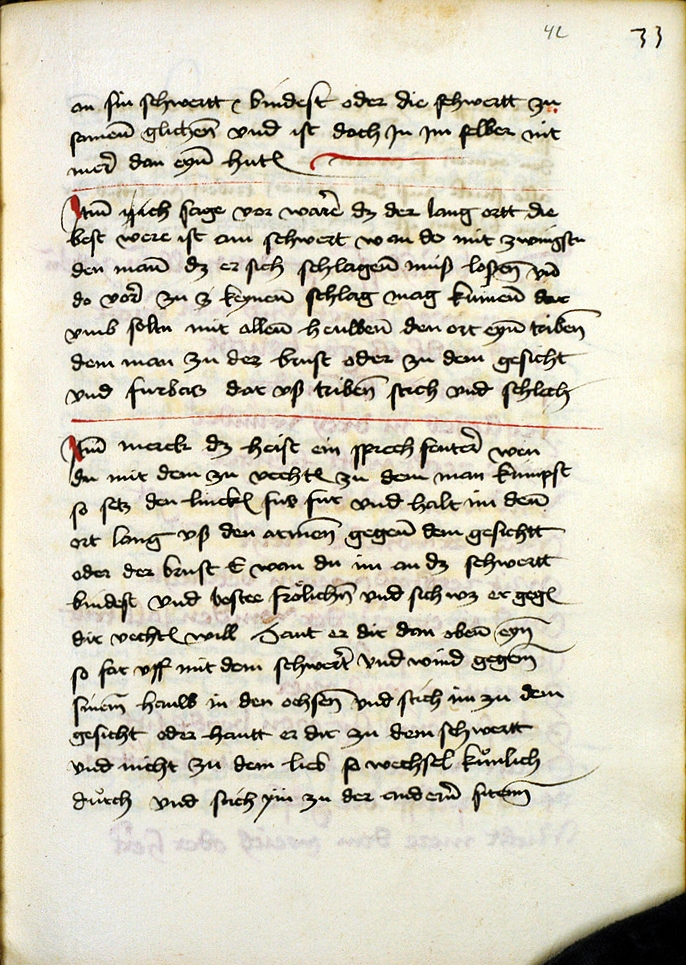 42 33
an sin schwertt bindest oder die schwertt zu
samen̄ glichen̄ vnd ist doch In im selber nit
mer̄ dan eyn̄ hutt
Itm̄ ich sage vor ware dz der lang ortt die
best were ist am schwert wan do mit zwingstu
den man̄ dz er sich schlagen̄ muß loßen̄ vn̄
do vor̄ zu keynen̄ schlag mag kumen̄ dar
vmb soltu mit allen̄ heuwen̄ den ort eyn̄ triben̄
dem man zu der brust oder zu dem gesicht
vnd furbas dar vß triben̄ stich vnd schleg
Itm̄ merck dz heist ein sprech fenster̄ wen
du mit dem zu vechten zu dem man kumpst
so setz den lincken fus fur vnd halt im den̄
ort lang vß den armen̄ gegen̄ dem gesichtt
oder der brust E wan du im an dz schwertt
bindest vnd bestee frölichn̄ vnd sich wz er gegen
dir vechten will Haut er dir dan oben̄ eyn̄
so far vff mit dem schwert̄ vnd wind gegen̄
sinem̄ hauw in den ochsen̄ vnd stich im zu dem
gesicht oder hautt er dir zu dem schwertt
vnd nicht zu dem lieb so wechsel kůnlich
dürch vnd stich yin zu der andern̄ siten̄